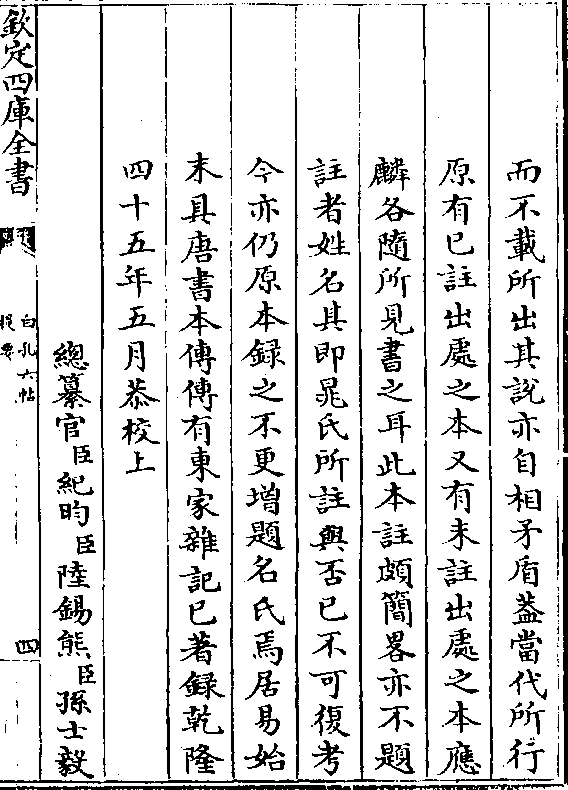 而不載所出其說亦自相矛盾葢當代所行
原有已註出處之本又有未註出處之本應
麟各隨所見書之耳此本註頗簡畧亦不題
註者姓名其即晁氏所註與否已不可復考
今亦仍原本録之不更增題名氏焉居易始
末具唐書本傳傳有東家雜記已著録乾隆
四十五年五月恭校上
總纂官臣紀昀臣陸錫熊臣孫士毅
欽定四庫全書
白孔六帖
提要
四